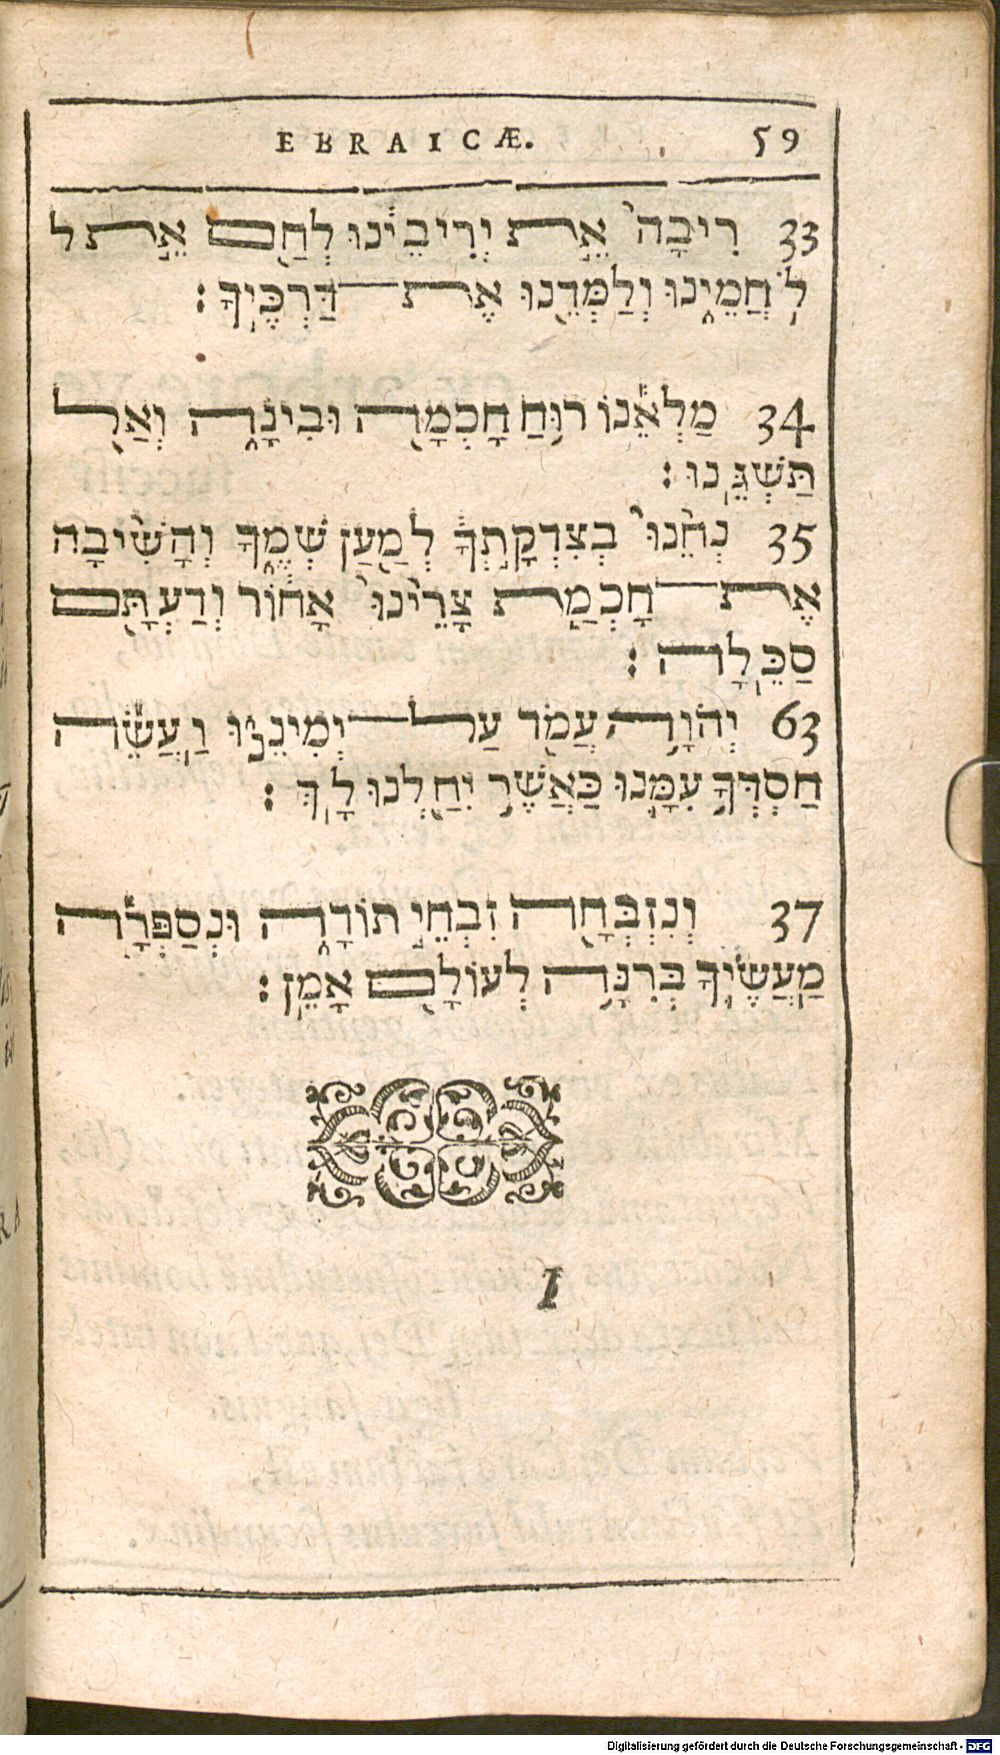 EBRAICÆ. 59
33 רִיבָה אֶת יְרִיבֵינוּ לְחַם אֶת ל
לֹחֲמֵינוּ וְלַמְּדֵנוּ אֶת־דַּרְכֶּיךָ׃
34 מַלְאֵנוֹ רוּחַ חָכְמָה וּבִינָה וְאַל
תַּשְׁגֵּנוּ׃
35 נְחֵנוּ בְצִדְקָתְךָ לְמַעַן שְׁמֶךָ וְהָשִׁיבָה
אֶת־חָכְמַת צָרֵינוּ אָחוֹר וְדַעְתָּם
סַכְּלָה׃
63 יְהֹוָה עֲמֹד עַל־יְמִינֵינוּ וַעֲשֵׂה
חַסְדְּךָ עִמָּנוּ כַּאֲשֶׁר יִחַלְנוּ לָךְ׃
37 וְנִזְבְּחָה זִבְחֵי תוֹדָה וּנְסַפְּרָה
מַעֲשֶׂיךָ בְּרִנָּה לְעוֹלָם אָמֵן׃
I
Digitalisierung gefördert durch die Deutsche Forschungsgemeinschaft - DFG